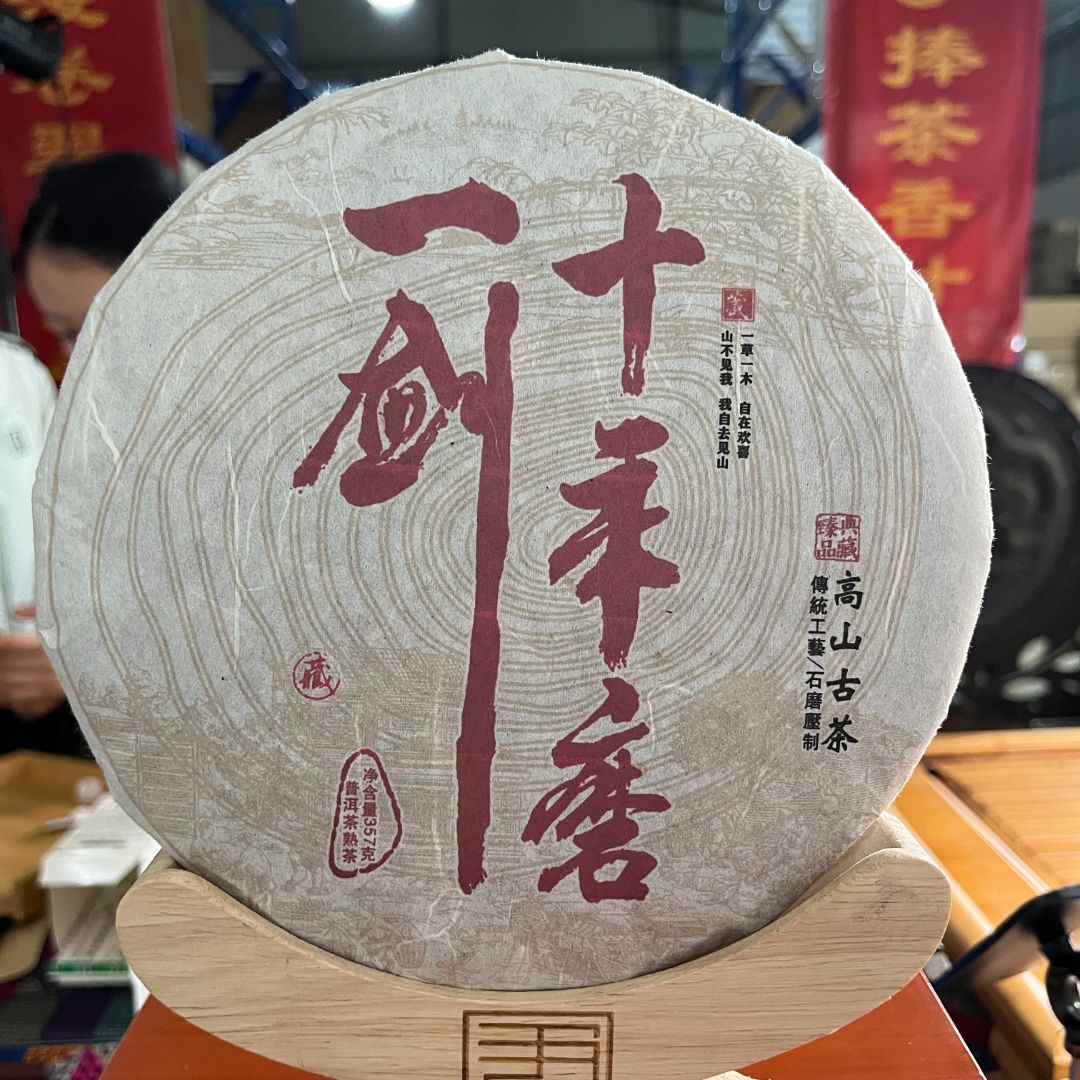 十年磨
一剑
藏
一草一木 自在欢喜
山不见我 我自去见山
典藏
臻品
高山古茶
傳統工藝/石磨壓制
藏
净含量357克
普洱茶熟茶
捧茶香